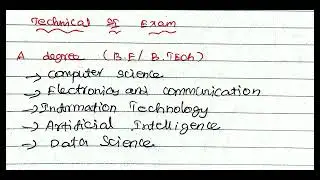 Technical of Exam
A degree (B.E/ B.TECh)
→ Computer science
→ Electronics and communication
→ Information Technology
→ Artificial Intelligence
→ Data Science